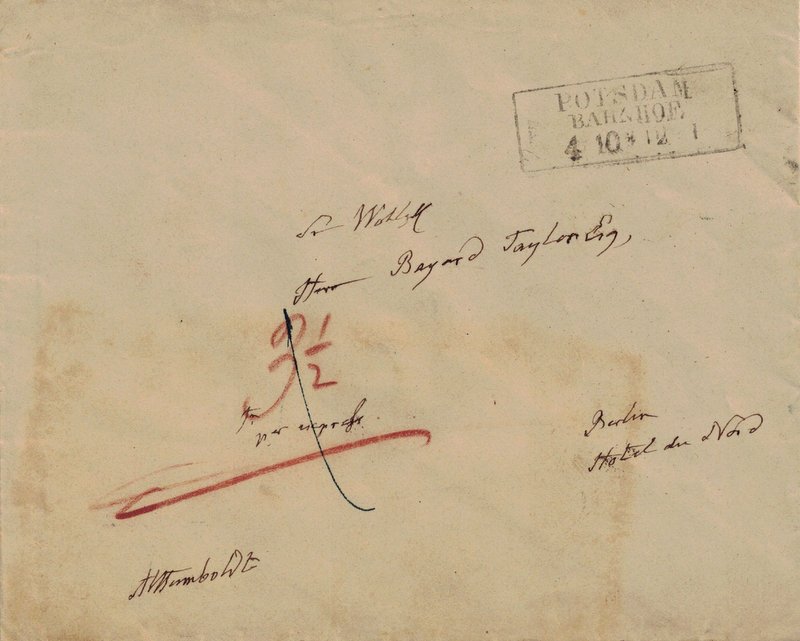 POTSDAM
BAHNHOF
4 10 * 12 1
Sr Wohlg
Herr Bayard Taylor Esq,
9 1/2
fr
per express
Berlin
Hotel du Nord
AvHumboldt